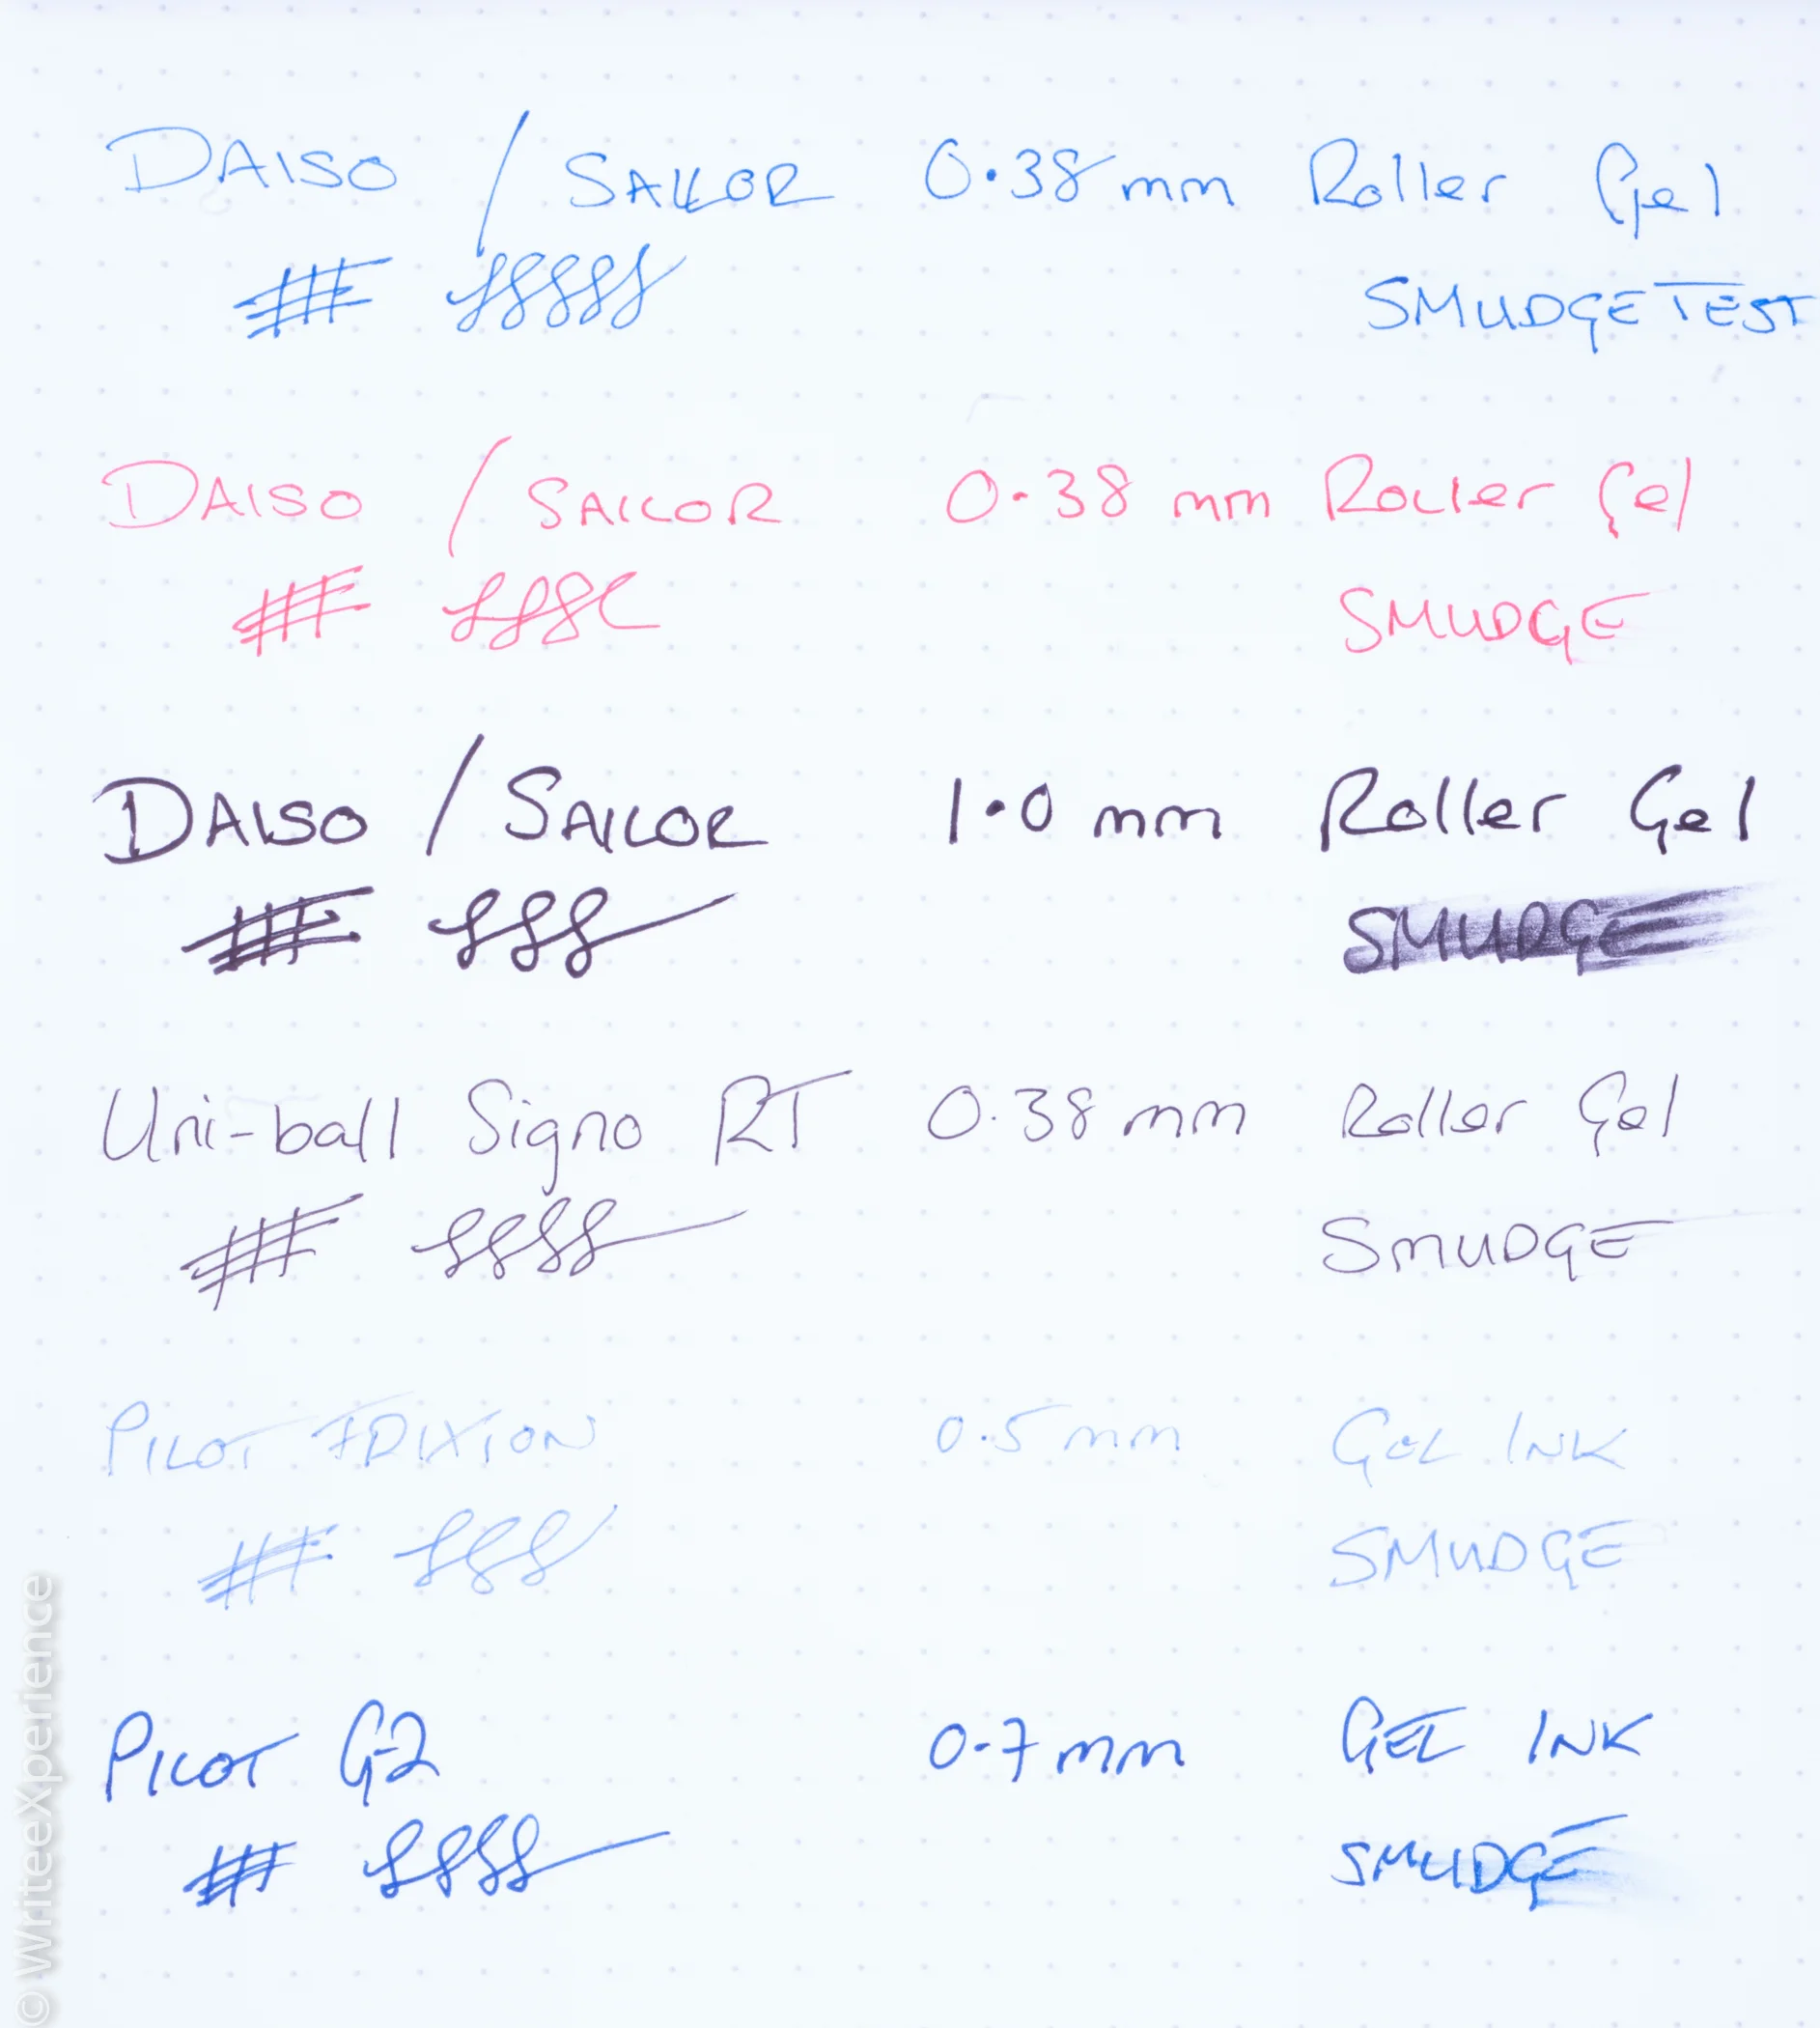 DAISO / SAILOR 0.38 mm Roller Gel
SMUDGE TEST
DAISO / SAILOR 0.38 mm Roller Gel
SMUDGE
DAISO / SAILOR 1.0 mm Roller Gel
SMUDGE
Uni-ball Signo RT 0.38 mm Roller Gel
SMUDGE
PILOT FRIXION 0.5 mm GEL INK
SMUDGE
PILOT G2 0.7 mm GEL INK
SMUDGE
© WriteeXperience